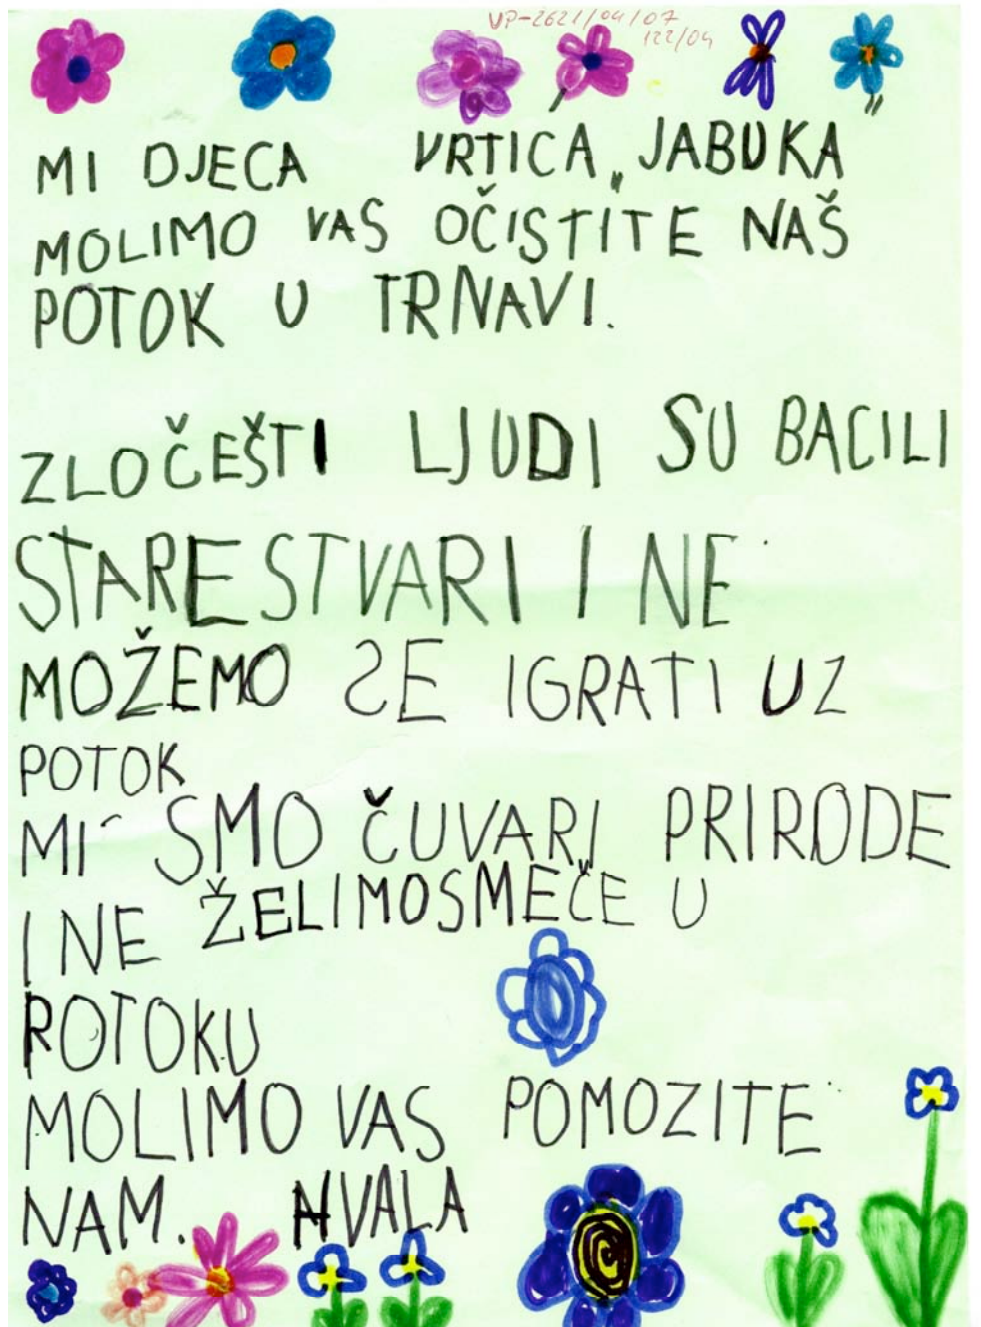 VP-2621/04/07
122/04
MI DJECA VRTIĆA „JABUKA"
MOLIMO VAS OČISTITE NAŠ
POTOK U TRNAVI.
ZLOČEŠTI LJUDI SU BACILI
STARE STVARI I NE
MOŽEMO SE IGRATI UZ
POTOK
MI SMO ČUVARI PRIRODE
I NE ŽELIMO SMEČE U
POTOKU
MOLIMO VAS POMOZITE
NAM. HVALA